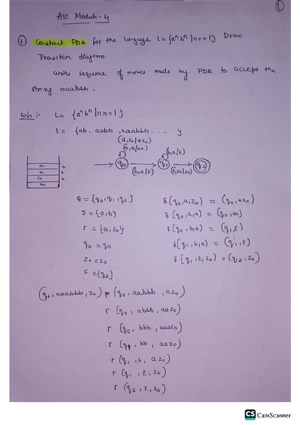 ATC Module-4
1) Construct PDA for the language L = {aⁿ bⁿ | n>=1} Draw
Transition diagram
Write sequence of moves made by PDA to accept the
string aaabbb.
Soln:- L = {aⁿ bⁿ | n>=1}
L = {ab, aabb, aaabbb . . . . }
(a,z0/az0)
(a,a/aa)
(b,a/ε)
q0 q1 q2
(b,a/ε) (ε,z0/z0)
a
a
a
z0
Q = {q0, q1, q2} δ(q0, a, z0) = (q0, az0)
Σ = {a, b} δ(q0, a, a) = (q0, aa)
Γ = {a, z0} δ(q0, b, a) = (q1, ε)
q0 = q0 δ(q1, b, a) = (q1, ε)
z0 = z0 δ(q1, ε, z0) = (q2, z0)
F = {q2}
(q0, aaabbb, z0) ⊢ (q0, aabbb, az0)
⊢ (q0, abbb, aaz0)
⊢ (q0, bbb, aaaz0)
⊢ (q1, bb, aaz0)
⊢ (q1, b, az0)
⊢ (q1, ε, z0)
⊢ (q2, ε, z0)
CS CamScanner